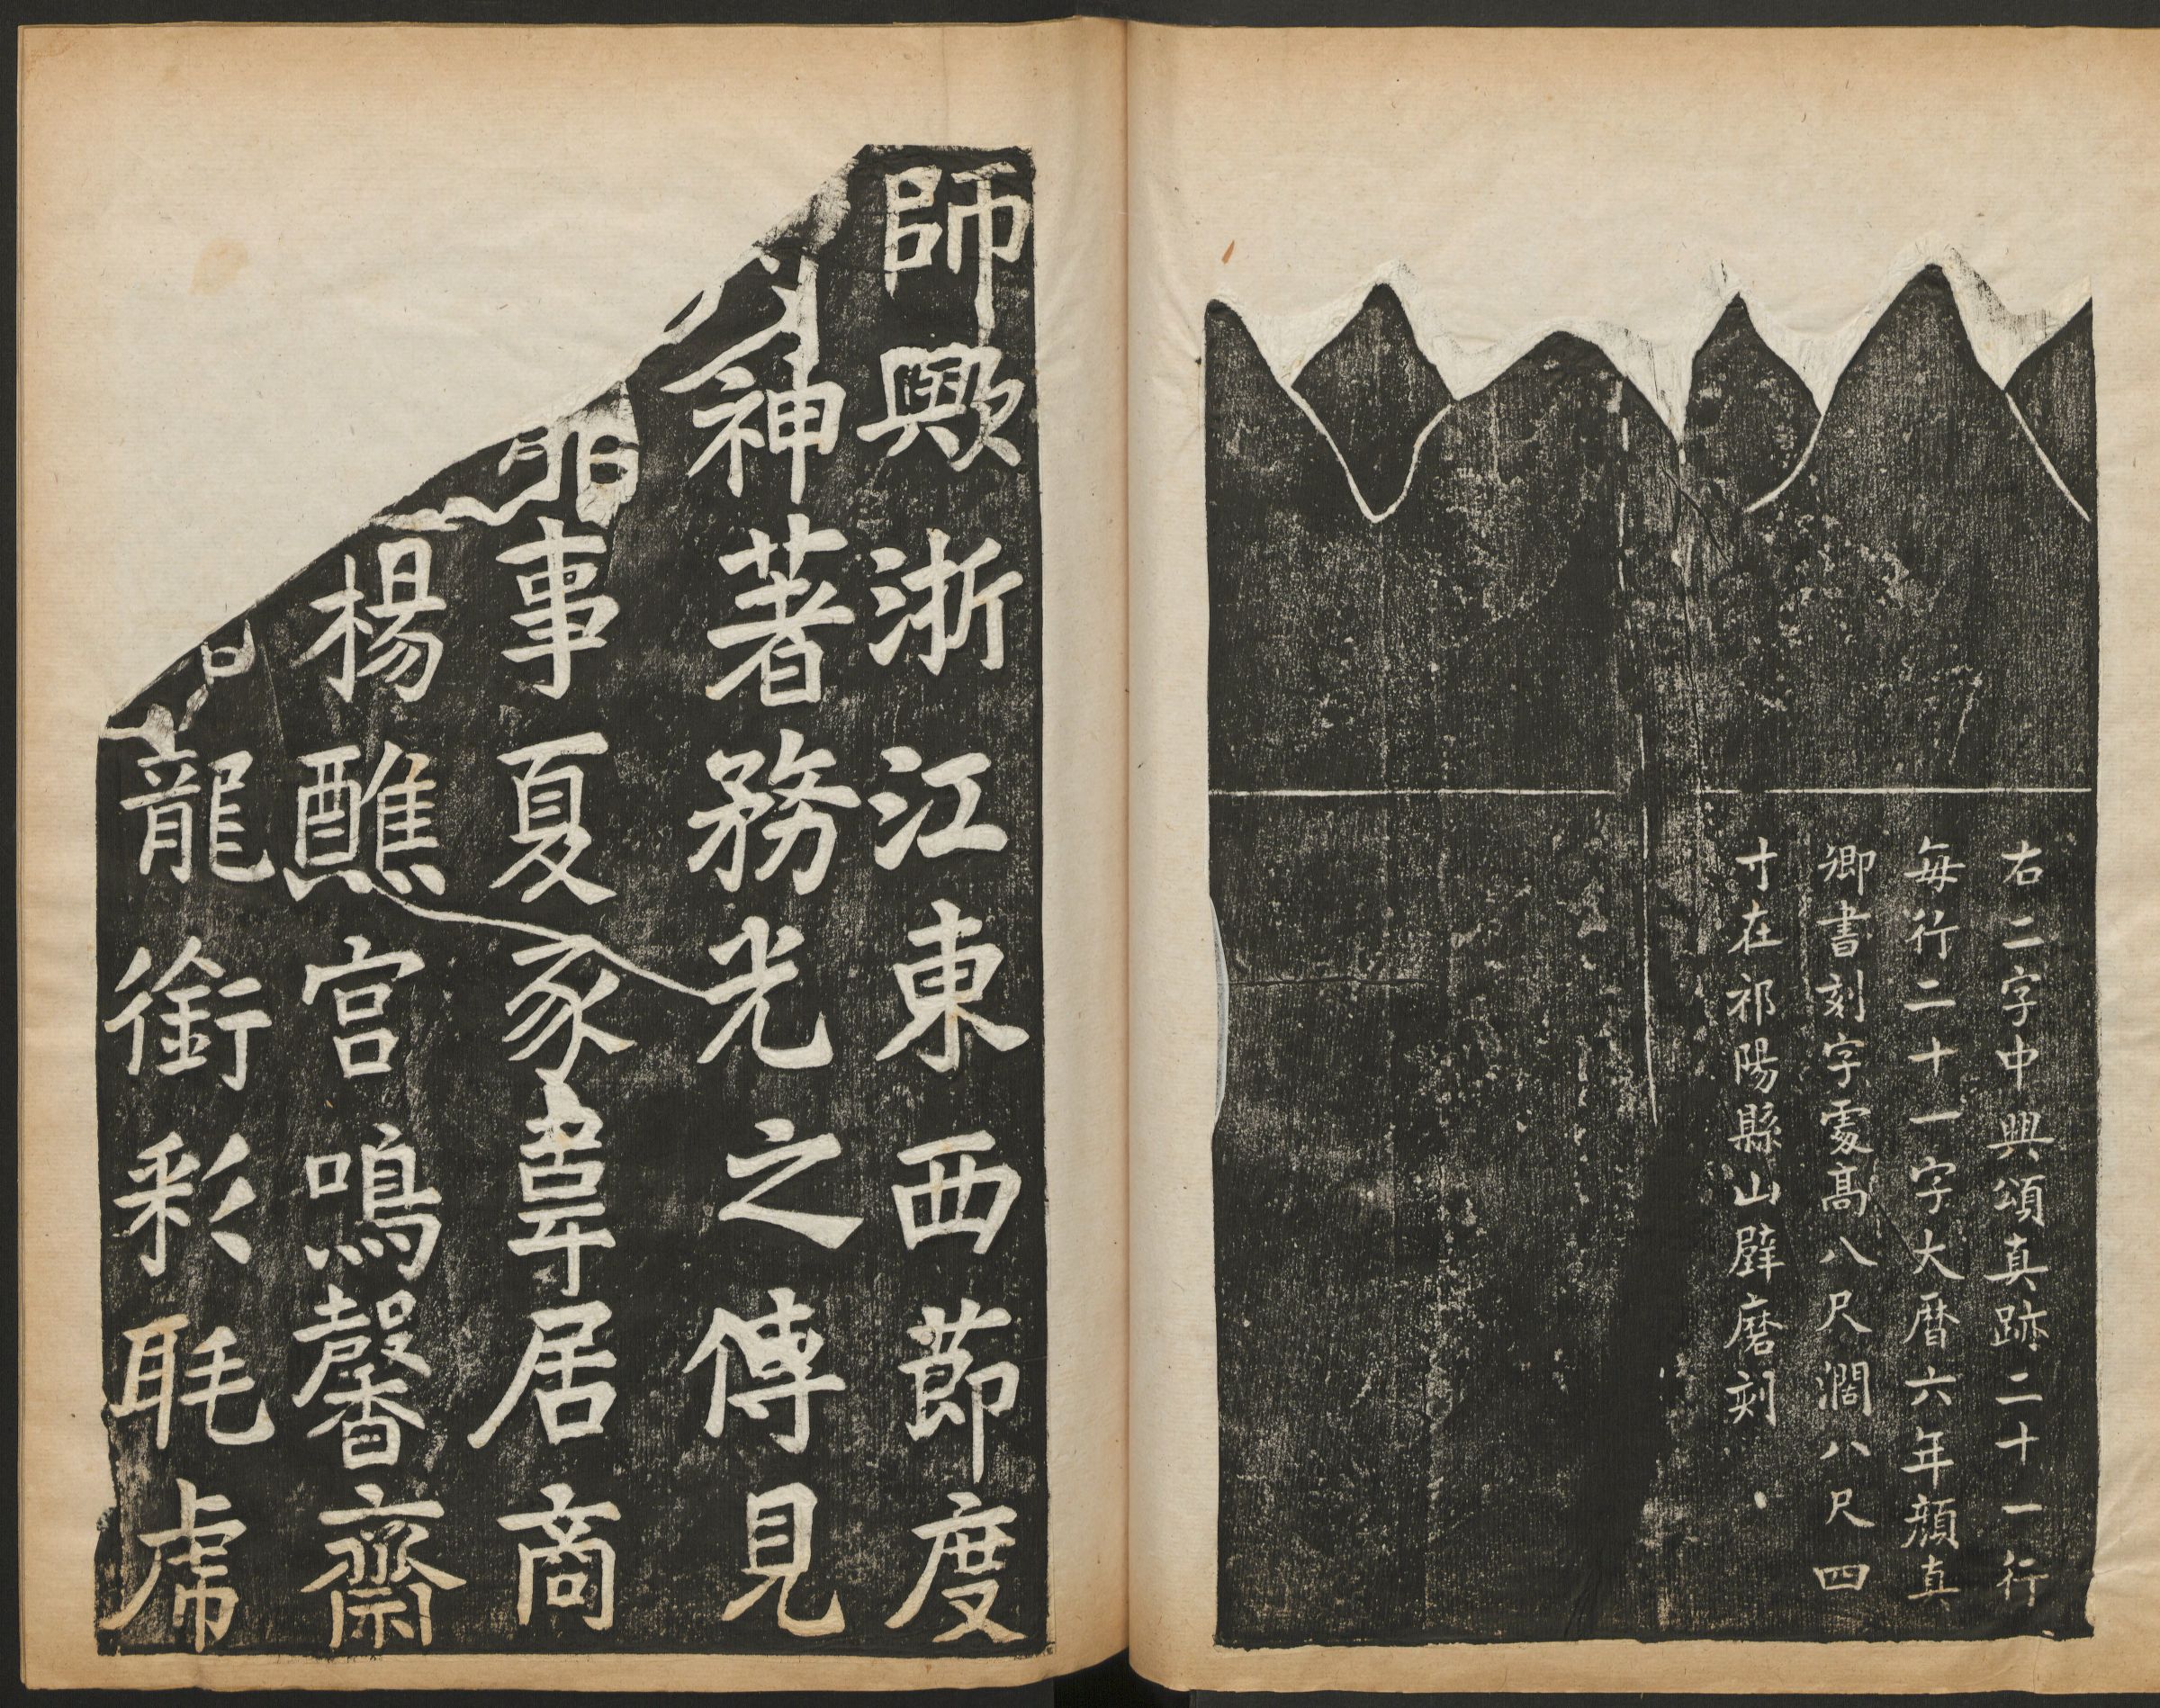 右二字中興頌真跡二十一行
每行二十一字大曆六年顏真
卿書刻字處高八尺濶八尺四
寸在祁陽縣山壁磨刻
師歟浙江東西節度
神著務光之傳見
事夏豕韋居商
楊醮宮鳴馨齋
龍銜彩眊虏